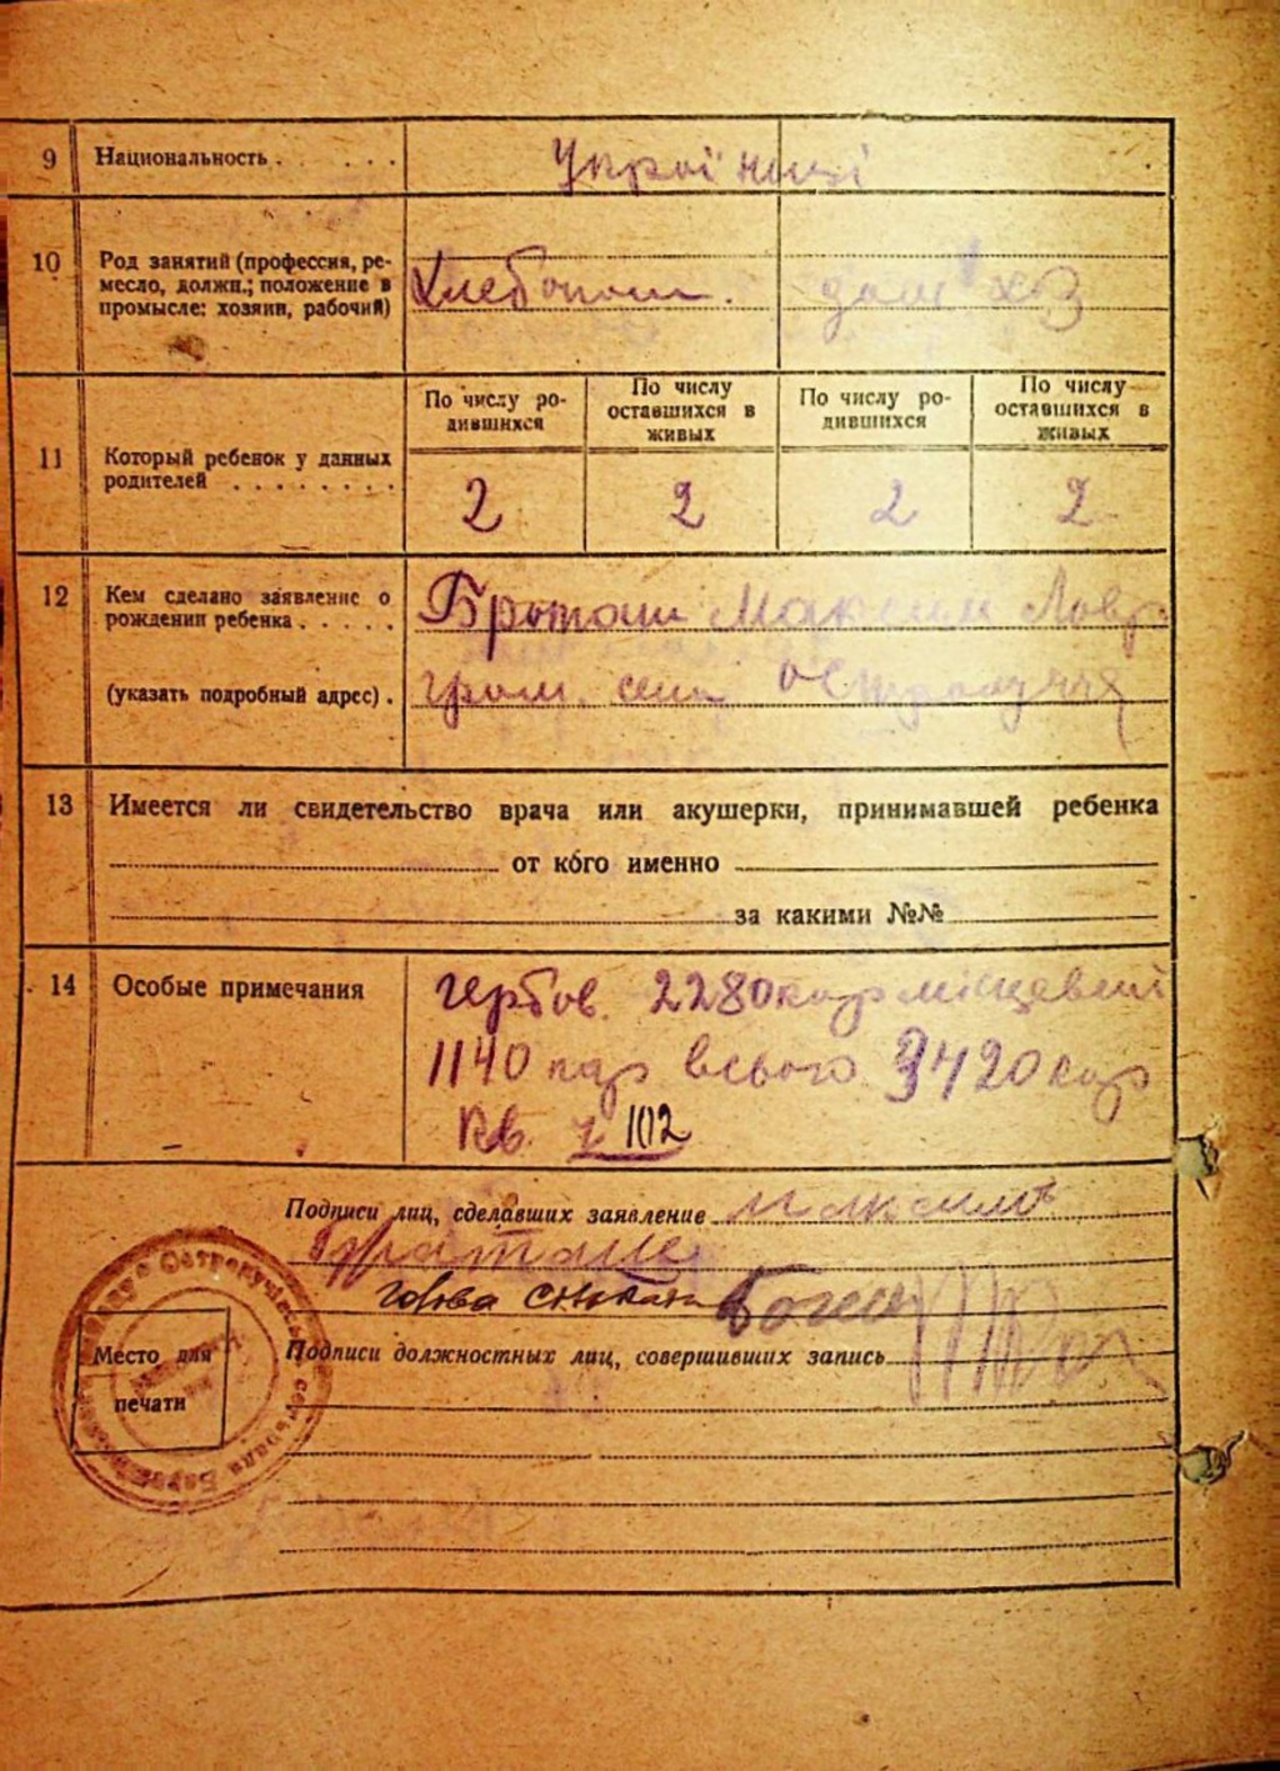 9 Национальность . . . . . Украінці
10 Род занятий (профессия, ре-
месло, должн.; положение в
промысле: хозяин, рабочий)
Хлебопаш. дом хоз
11 Который ребенок у данных
родителей . . . . . . . .
По числу ро-
дившихся
По числу
оставшихся в
живых
По числу ро-
дившихся
По числу
оставшихся в
живых
2 2 2 2
12 Кем сделано заявление о
рождении ребенка . . . . .
(указать подробный адрес) .
Браташ Максим Лавр.
гром. сел
13 Имеется ли свидетельство врача или акушерки, принимавшей ребенка
от кого именно
за какими №№
14 Особые примечания
гербов. 2280 кар місцевий
1140 кар всього 3420 кар
Кв. 102
Подписи лиц, сделавших заявление Максим
Браташ
голова
Подписи должностных лиц, совершивших запись
Место для
печати